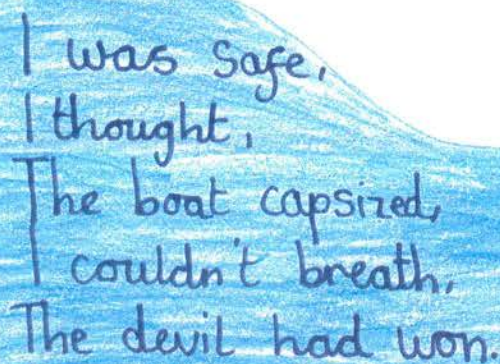 I was safe,
I thought,
The boat capsized,
I couldn't breath,
The devil had won.